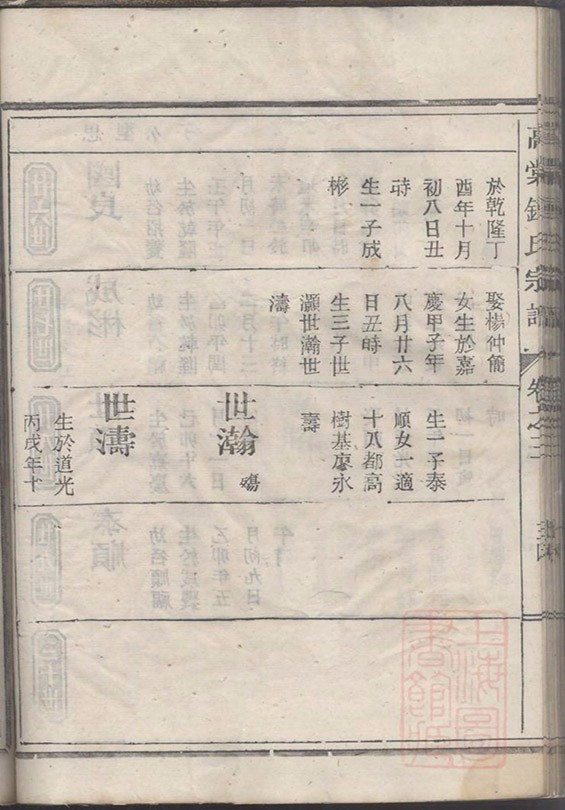 高棠鍾氏宗譜
卷之三
於乾隆丁
酉年十月
初八日丑
時
生一子成
彬
娶楊仲簡
女生於嘉
慶甲子年
八月廿六
日丑時
生三子世
灝世瀚世
濤
生一子泰
順女一適
十八都高
樹基廖永
壽
世瀚
殤
世濤
生於道光
丙戌年十
上海圖
書館藏